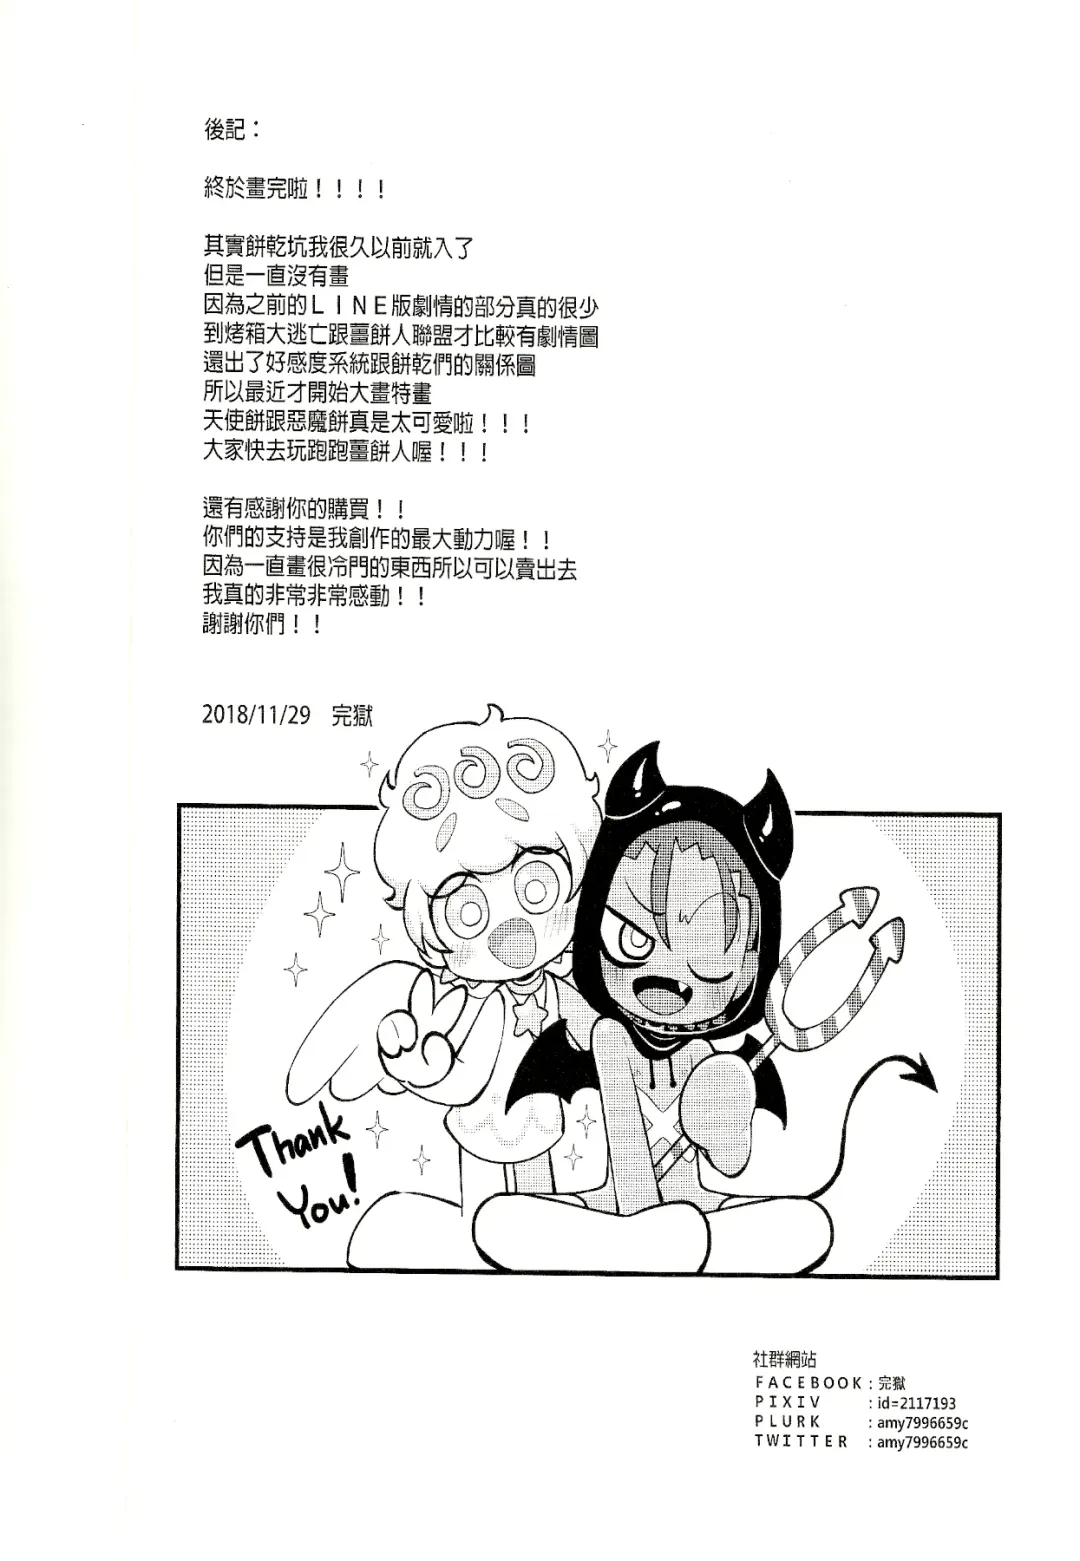 後記：
終於畫完啦！！！！
其實餅乾坑我很久以前就入了
但是一直沒有畫
因為之前的ＬＩＮＥ版劇情的部分真的很少
到烤箱大逃亡跟薑餅人聯盟才比較有劇情圖
還出了好感度系統跟餅乾們的關係圖
所以最近才開始大畫特畫
天使餅跟惡魔餅真是太可愛啦！！！
大家快去玩跑跑薑餅人喔！！！
還有感謝你的購買！！
你們的支持是我創作的最大動力喔！！
因為一直畫很冷門的東西所以可以賣出去
我真的非常非常感動！！
謝謝你們！！
2018/11/29　完獄
Thank
You!
社群網站
ＦＡＣＥＢＯＯＫ：完獄
ＰＩＸＩＶ　　　：id=2117193
ＰＬＵＲＫ　　　：amy7996659c
ＴＷＩＴＴＥＲ　：amy7996659c